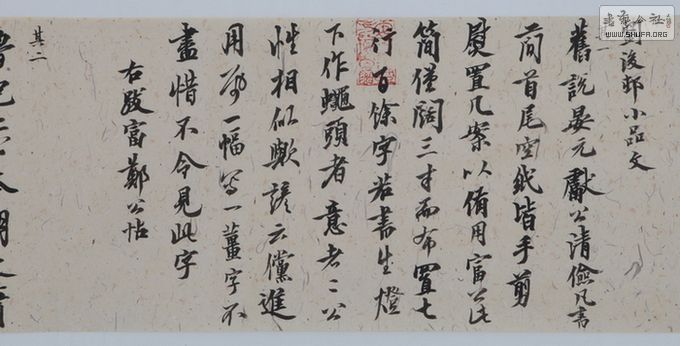 劉後邨小品文
舊說晏元獻公清儉凡書
簡首尾空紙皆手剪
熨置几案以備用富公此
簡僅闊三寸而布置七
行百餘字若書生燈
下作蠅頭者意者二公
性相似歟諺云儻進
用帋一幅寫一薑字不
盡惜不令見此字
右跋富鄭公帖
其二
WWW.SHUFA.ORG